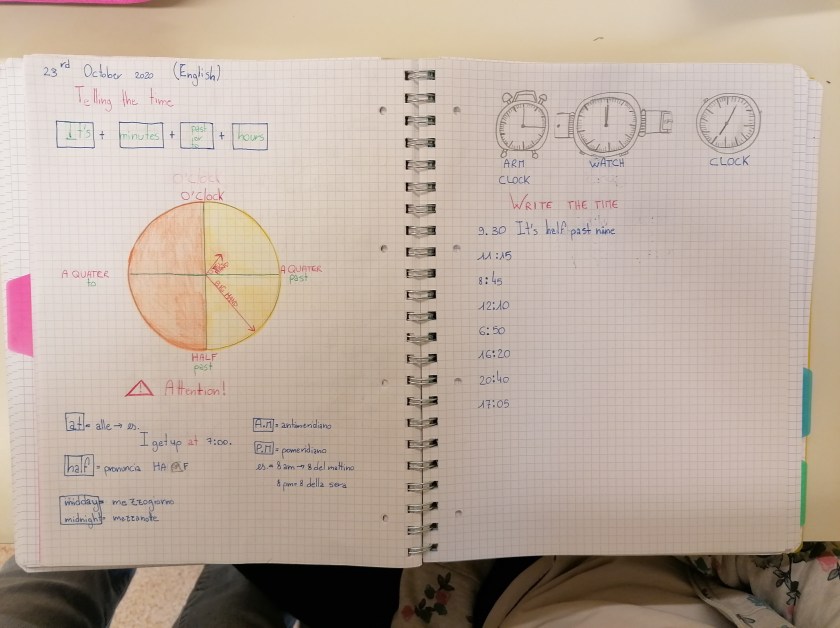 23rd October 2020 (English)
Telling the time
It's + minutes + past or to + hours
O'clock
O'CLOCK
A QUATER to
A QUATER past
BIG HAND
HALF past
Attention!
at = alle → es.
I get up at 7:00.
half = pronuncia HA F
midday = mezzogiorno
midnight = mezzanotte
A.M = antimeridiano
P.M = pomeridiano
es → 8 am → 8 del mattino
8 pm = 8 della sera
ARM CLOCK
WATCH
CLOCK
WRITE THE TIME
9.30 It's half past nine
11:15
8:45
12:10
6:50
16:20
20:40
17:05